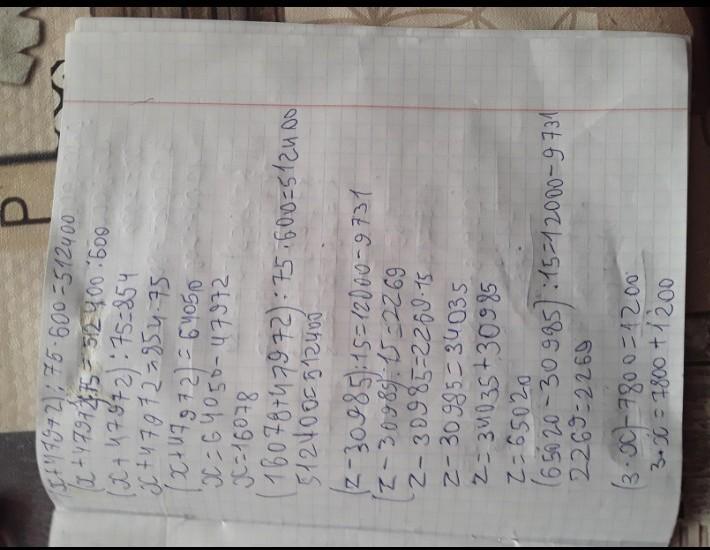 (x+47972):75·600=512400
(x+47972):75=512400:600
(x+47972):75=854
x+47972=854·75
(x+47972)=64050
x=64050-47972
x=16078
(16078+47972):75·600=512400
512400=512400
(z-30985):15=12000-9731
(z-30985):15=2269
z-30985=2269·15
z-30985=34035
z=34035+30985
z=65020
(65020-30985):15=12000-9731
2269=2269
(3·x)-7800=1200
3·x=7800+1200